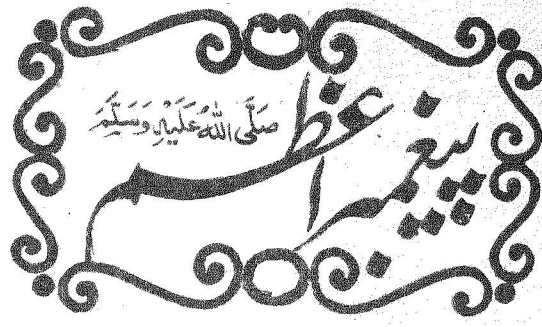 پیغمبر اعظم
صَلَّی اللّٰهُ عَلَیْہِ وَسَلَّمَ